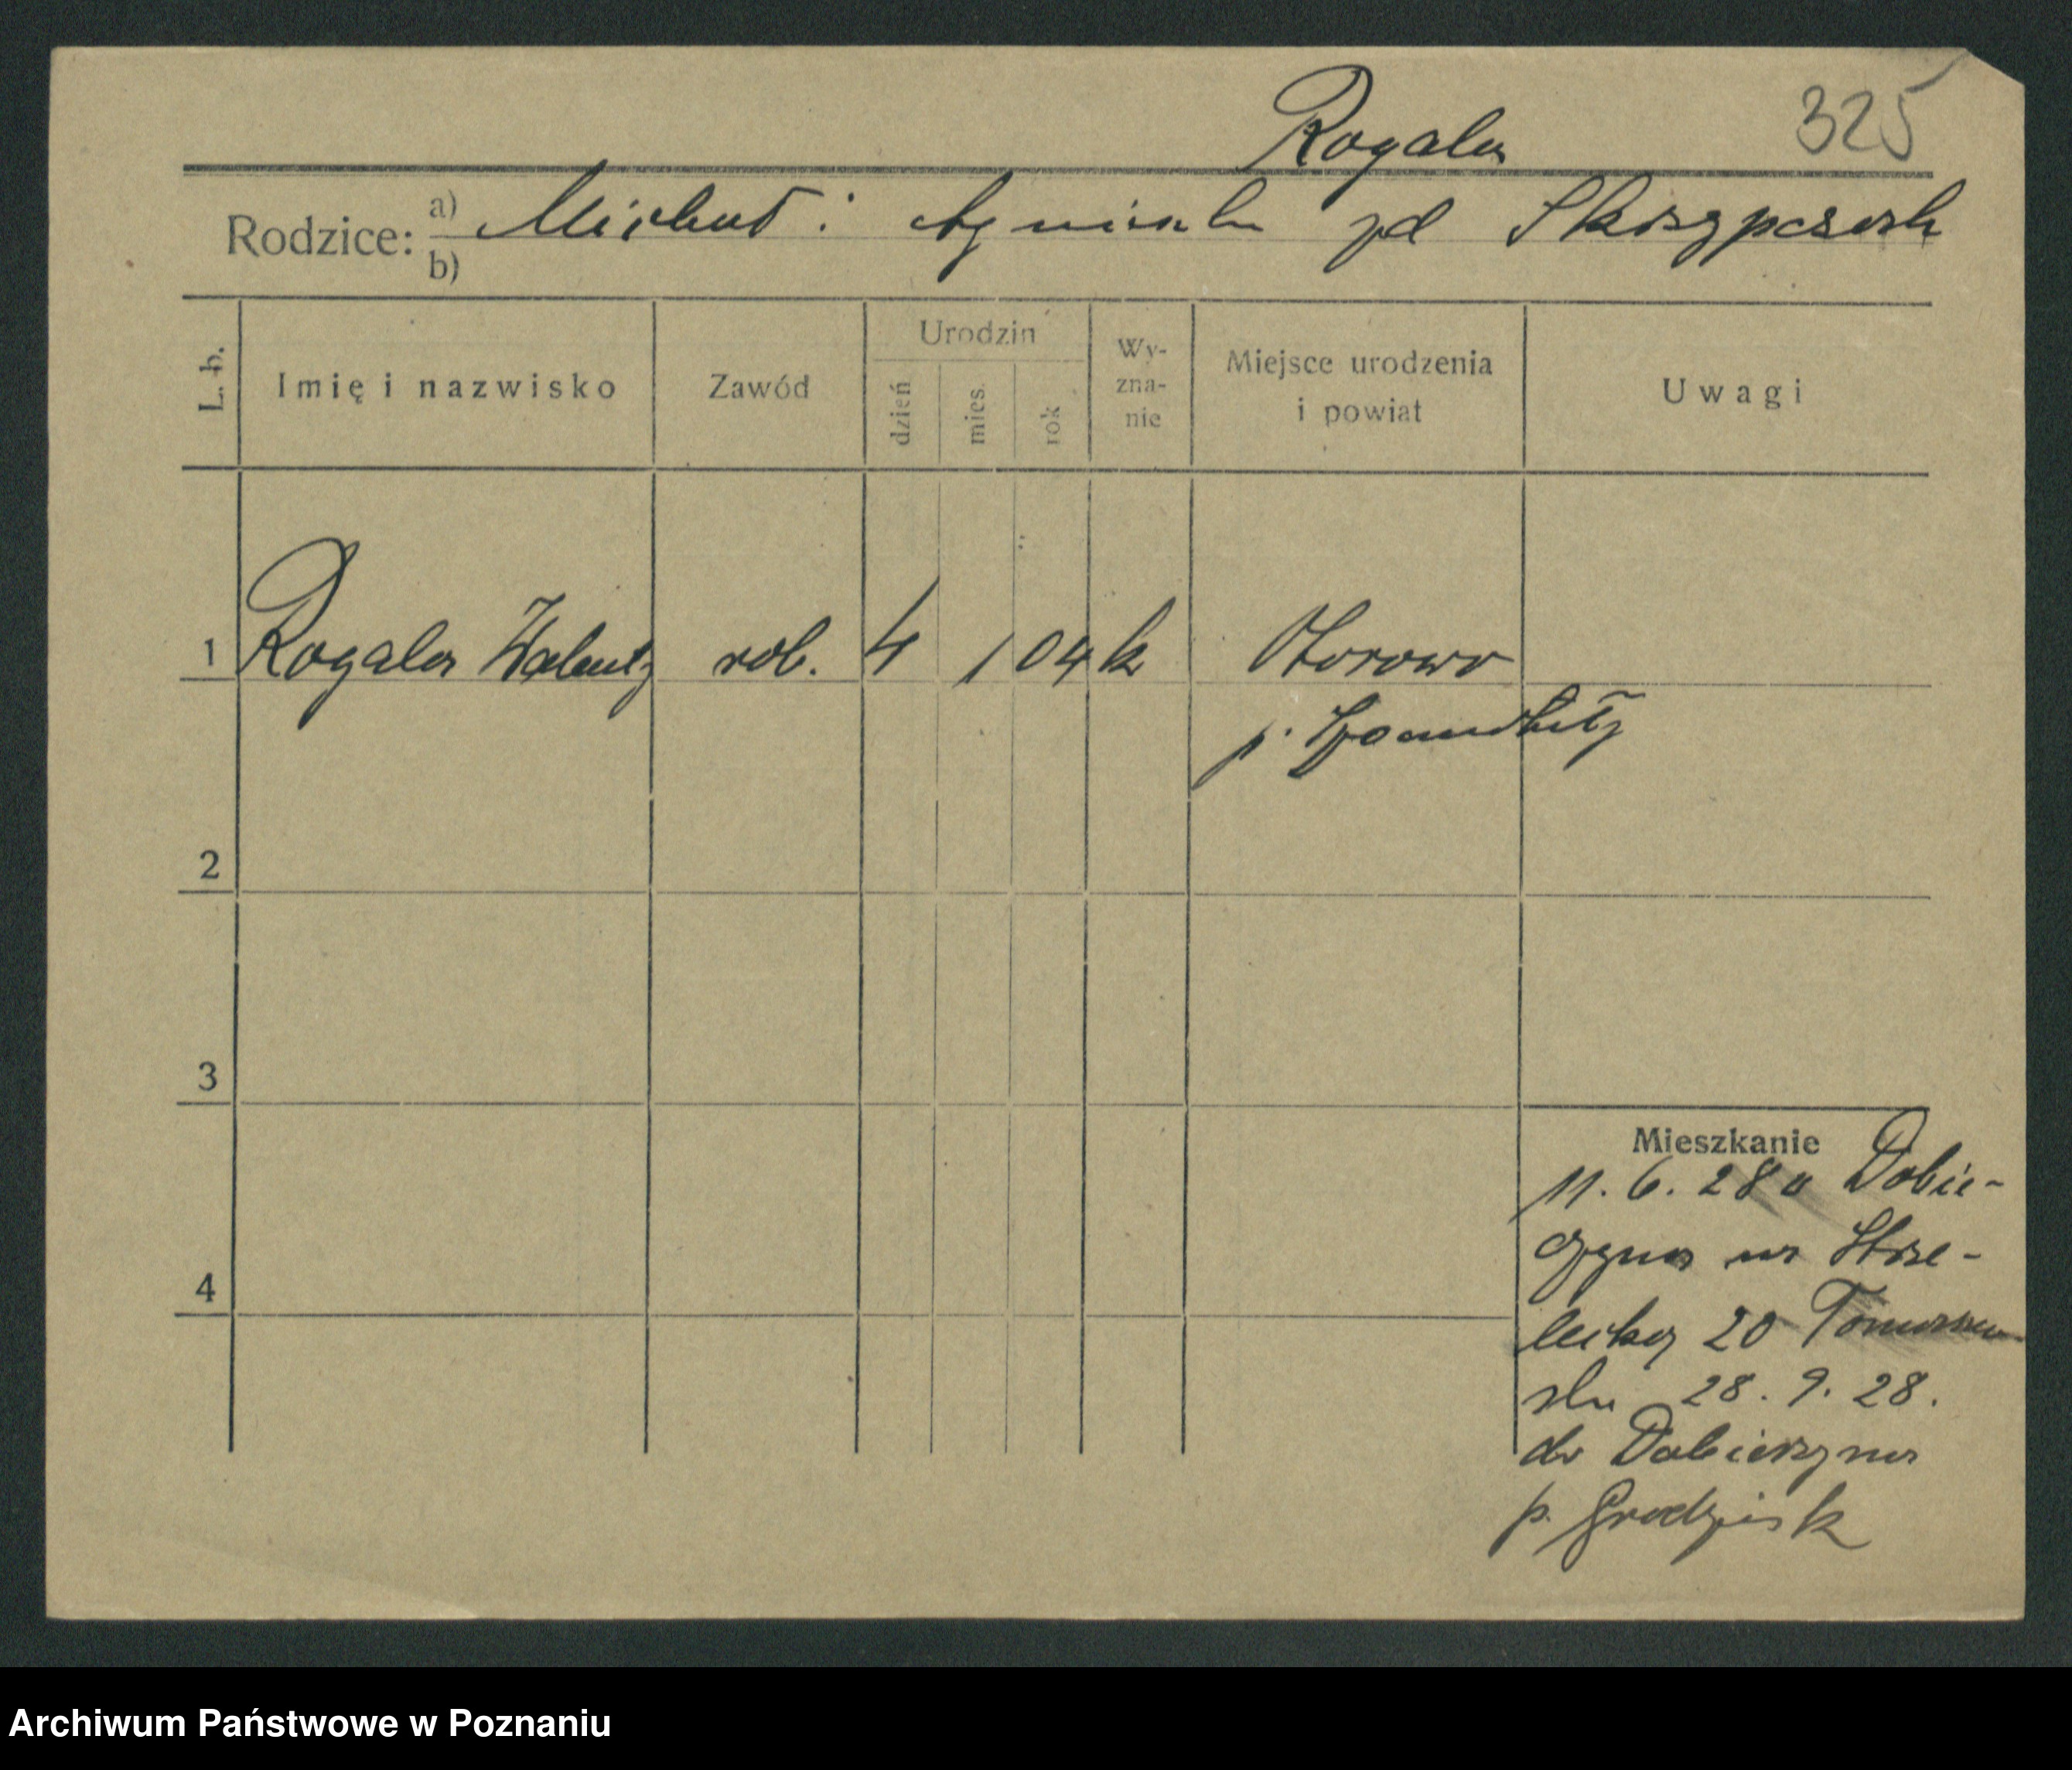 Rogala 325
Rodzice: a) Michał i Agnieszka zd Skrzypczak
b)
L. b. Imię i nazwisko Zawód Urodzin dzień mies. rok Wy-zna-nie Miejsce urodzenia i powiat Uwagi
1 Rogala Walenty rob. 4 1 04 k Otorowo
p. Szamotuły
2
3
4
Mieszkanie
11. 6. 28 z Dobie-
rzyna ul Strze-
lecka 20
28. 9. 28.
do Dobierzyna
p. Grodzisk
Archiwum Państwowe w Poznaniu